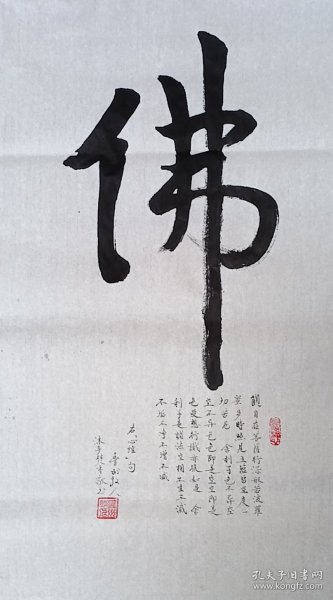 佛
觀自在菩薩行深般若波羅
蜜多時照見五蘊皆空度一
切苦厄 舍利子色不異空
空不異色色即是空空即是
色受想行識亦復如是 舍
利子是諸法空相不生不滅
不垢不淨不增不減
右心經句
孔夫子旧书网
book.kongfz.com